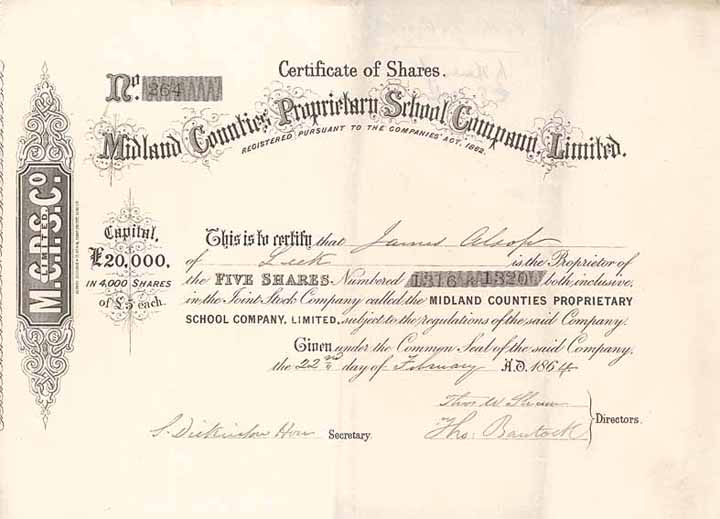 Certificate of Shares.
No. 264
Midland Counties Proprietary School Company, Limited.
REGISTERED PURSUANT TO THE COMPANIES' ACT, 1862.
M.C.P.S.Co.
LIMITED.
Capital,
£20,000,
IN 4,000 SHARES
of £5 each.
This is to certify that James Alsop
of Leek is the Proprietor of
the FIVE SHARES Numbered 1316 to 1320 both inclusive,
in the Joint Stock Company called the MIDLAND COUNTIES PROPRIETARY
SCHOOL COMPANY, LIMITED, subject to the regulations of the said Company.
Given under the Common Seal of the said Company,
the 22nd day of February A.D. 1864
Thos W Shaw
Tho: Bantock
Directors.
S. Dickinson Hon Secretary.